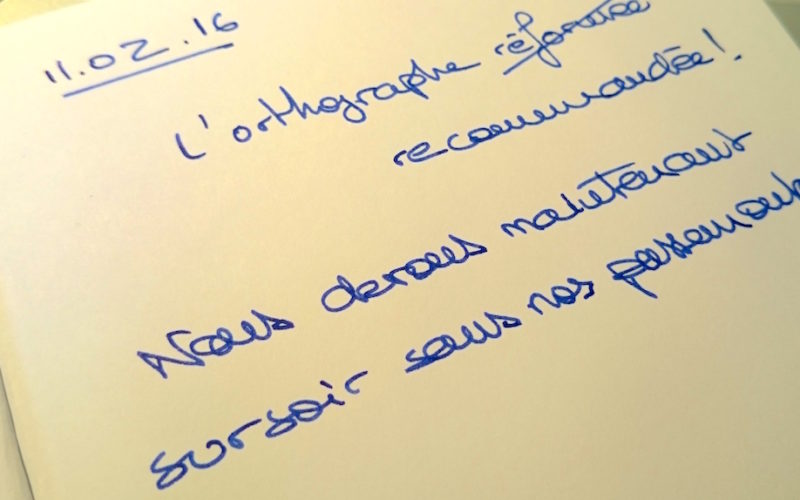 11.02.16
L'orthographe réformée
recommandée!
Nous devons maintenant
sursoir sous nos